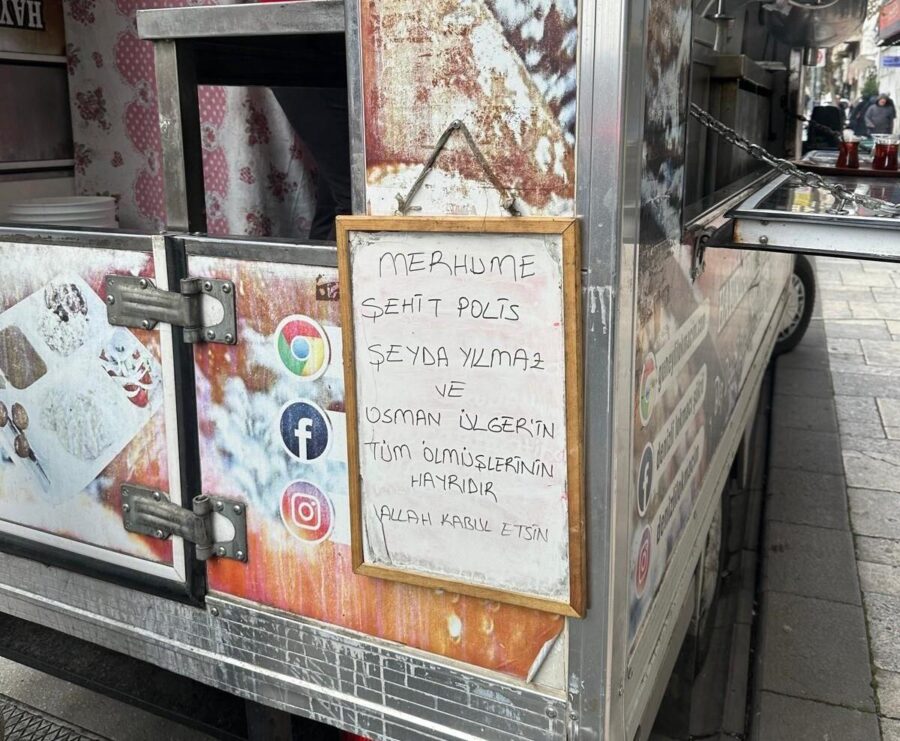 HAYR
MERHUME
ŞEHİT POLİS
ŞEYDA YILMAZ
VE
OSMAN ÜLGER'İN
TÜM ÖLMÜŞLERİNİN
HAYRIDIR
ALLAH KABUL ETSİN